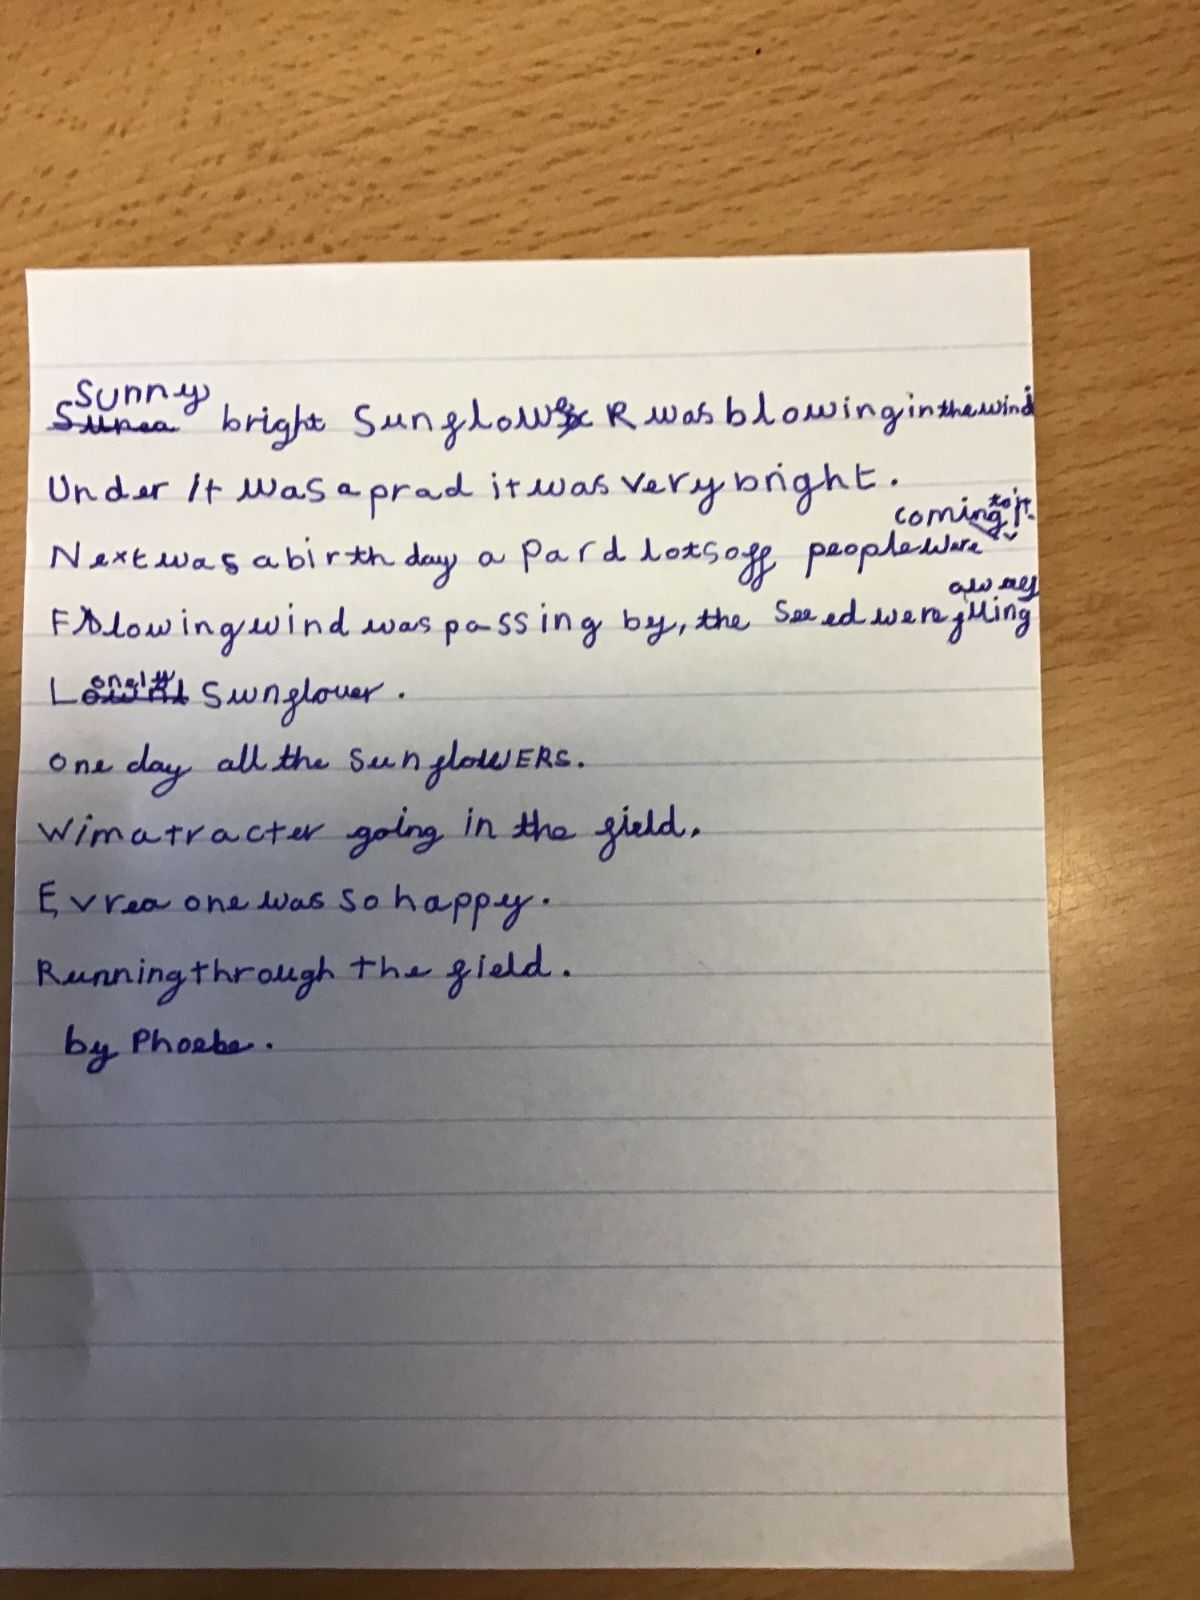 Sunny
Sunea bright Sunflower R was blowing in the wind
Under it was a prad it was very bright.
coming to it.
Next was a birth day a pard lots off people were
away
Flowing wind was passing by, the Seeed were flling
Lonely Sunflouer.
one day all the SunflowERS.
Wim a tracter going in the field.
Evrea one was so happy.
Running through the field.
by Phoebe.